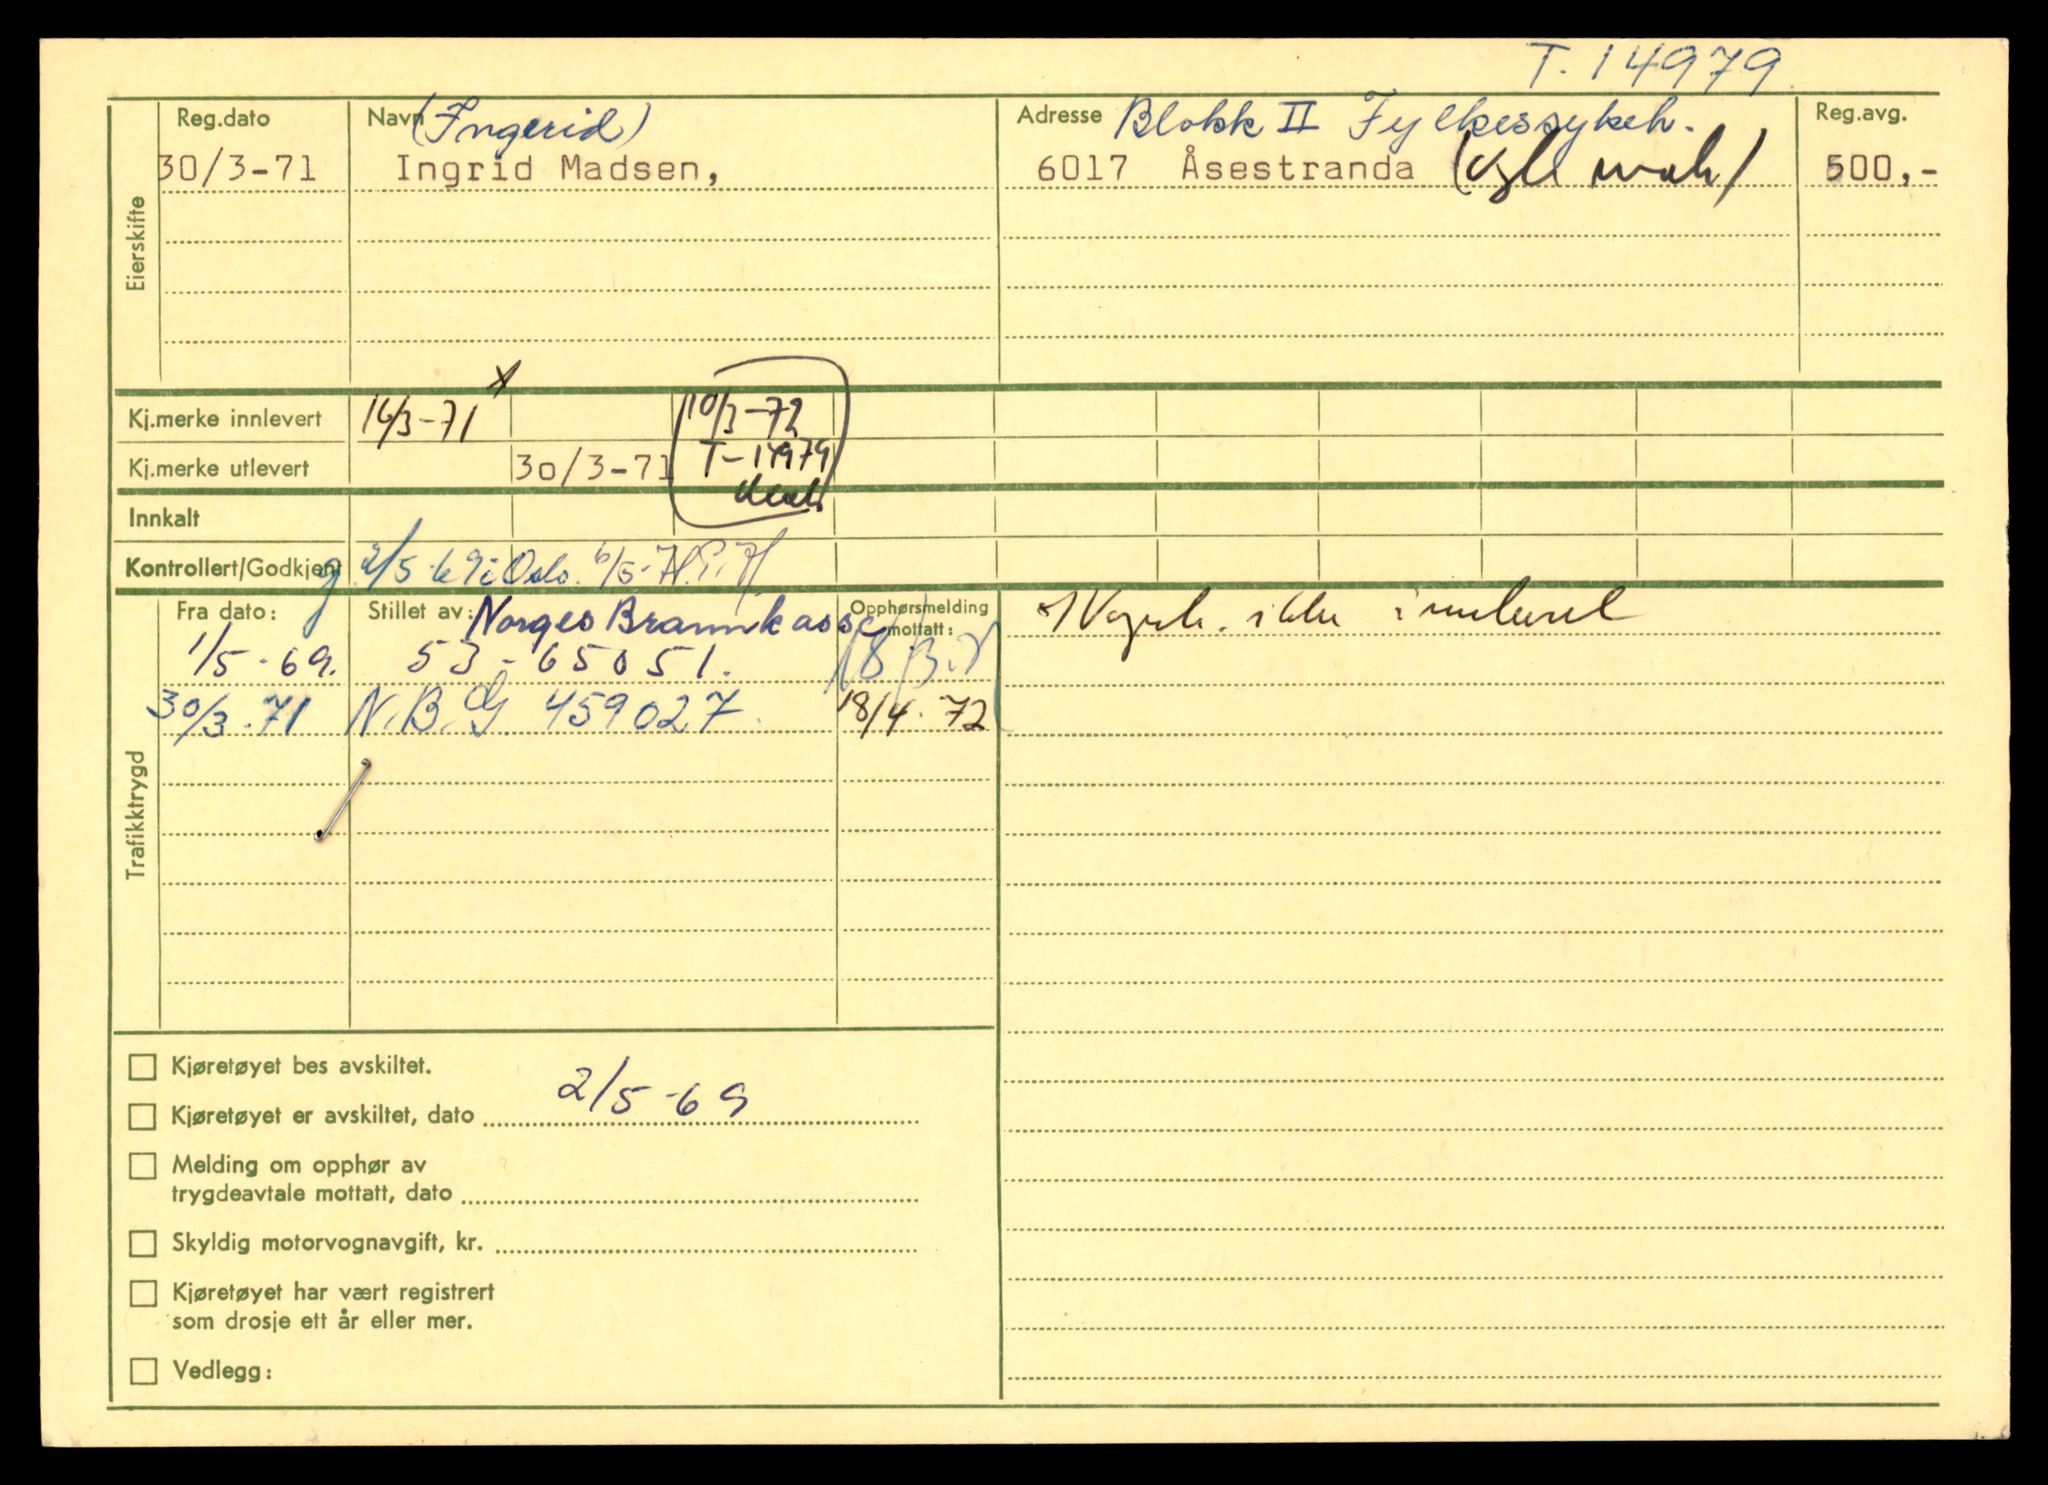 T. 14979
Reg.dato Navn (Ingerid) Adresse Blokk II Fylkessykeh. Reg.avg.
30/3-71 Ingrid Madsen, 6017 Åsestranda 500,-
Eierskifte
x
Kj.merke innlevert 16/3-71 10/3-72
Kj.merke utlevert 30/3-71 T-14979
Innkalt
Kontrollert/Godkjent 2/5-69 i Oslo.
Fra dato: Stillet av: Norges Brannkasse Opphørsmelding mottatt: ikke innlevert
1/5-69. 53-65051.
30/3.71 N.B. 459027. 18/4.72
Trafikktrygd
Kjøretøyet bes avskiltet.
Kjøretøyet er avskiltet, dato 2/5-69
Melding om opphør av
trygdeavtale mottatt, dato
Skyldig motorvognavgift, kr.
Kjøretøyet har vært registrert
som drosje ett år eller mer.
Vedlegg: